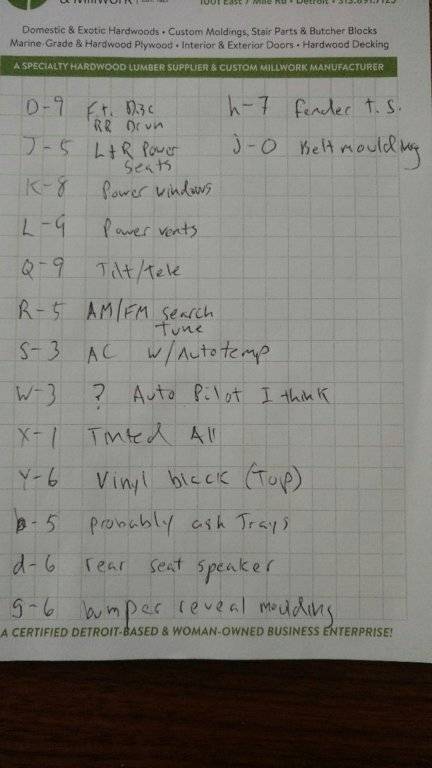 & Millwork
1001 East 7 Mile Rd • Detroit • 313.891.7125
Domestic & Exotic Hardwoods • Custom Moldings, Stair Parts & Butcher Blocks
Marine-Grade & Hardwood Plywood • Interior & Exterior Doors • Hardwood Decking
A SPECIALTY HARDWOOD LUMBER SUPPLIER & CUSTOM MILLWORK MANUFACTURER
D-9 Ft. Disc
RR Drum
J-5 L+R Power
Seats
K-8 Power windows
L-9 Power vents
Q-9 Tilt/tele
R-5 AM/FM search
tune
S-3 AC w/Autotemp
W-3 ? Auto Pilot I think
X-1 Tinted All
Y-6 Vinyl black (Top)
b-5 probably ash Trays
d-6 rear seat speaker
g-6 bumper reveal moulding
h-7 fender t.s.
j-0 Belt moulding
A CERTIFIED DETROIT-BASED & WOMAN-OWNED BUSINESS ENTERPRISE!